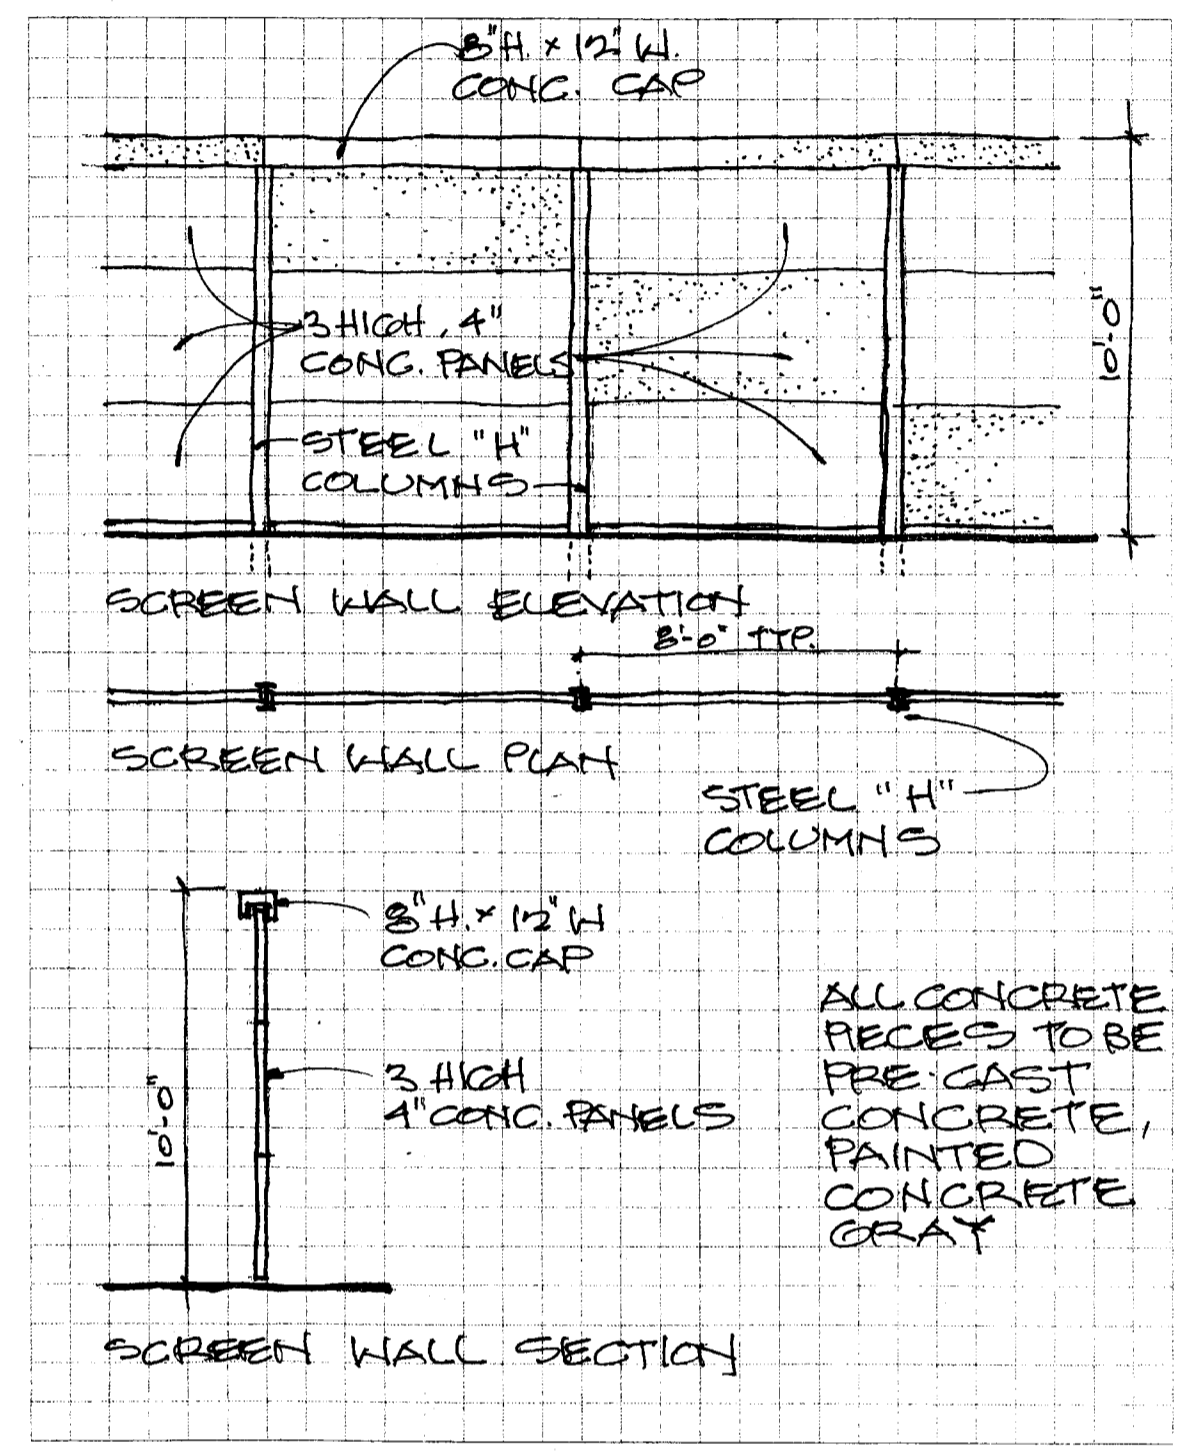 8"H. x 12" W.
CONC. CAP
3 HIGH, 4"
CONC. PANELS
10'-0"
STEEL "H"
COLUMNS
SCREEN WALL ELEVATION
8'-0" TYP.
SCREEN WALL PLAN
STEEL "H"
COLUMNS
8"H. x 12" W
CONC. CAP
10'-0"
3 HIGH
4" CONC. PANELS
ALL CONCRETE
PIECES TO BE
PRE-CAST
CONCRETE,
PAINTED
CONCRETE
GRAY
SCREEN WALL SECTION